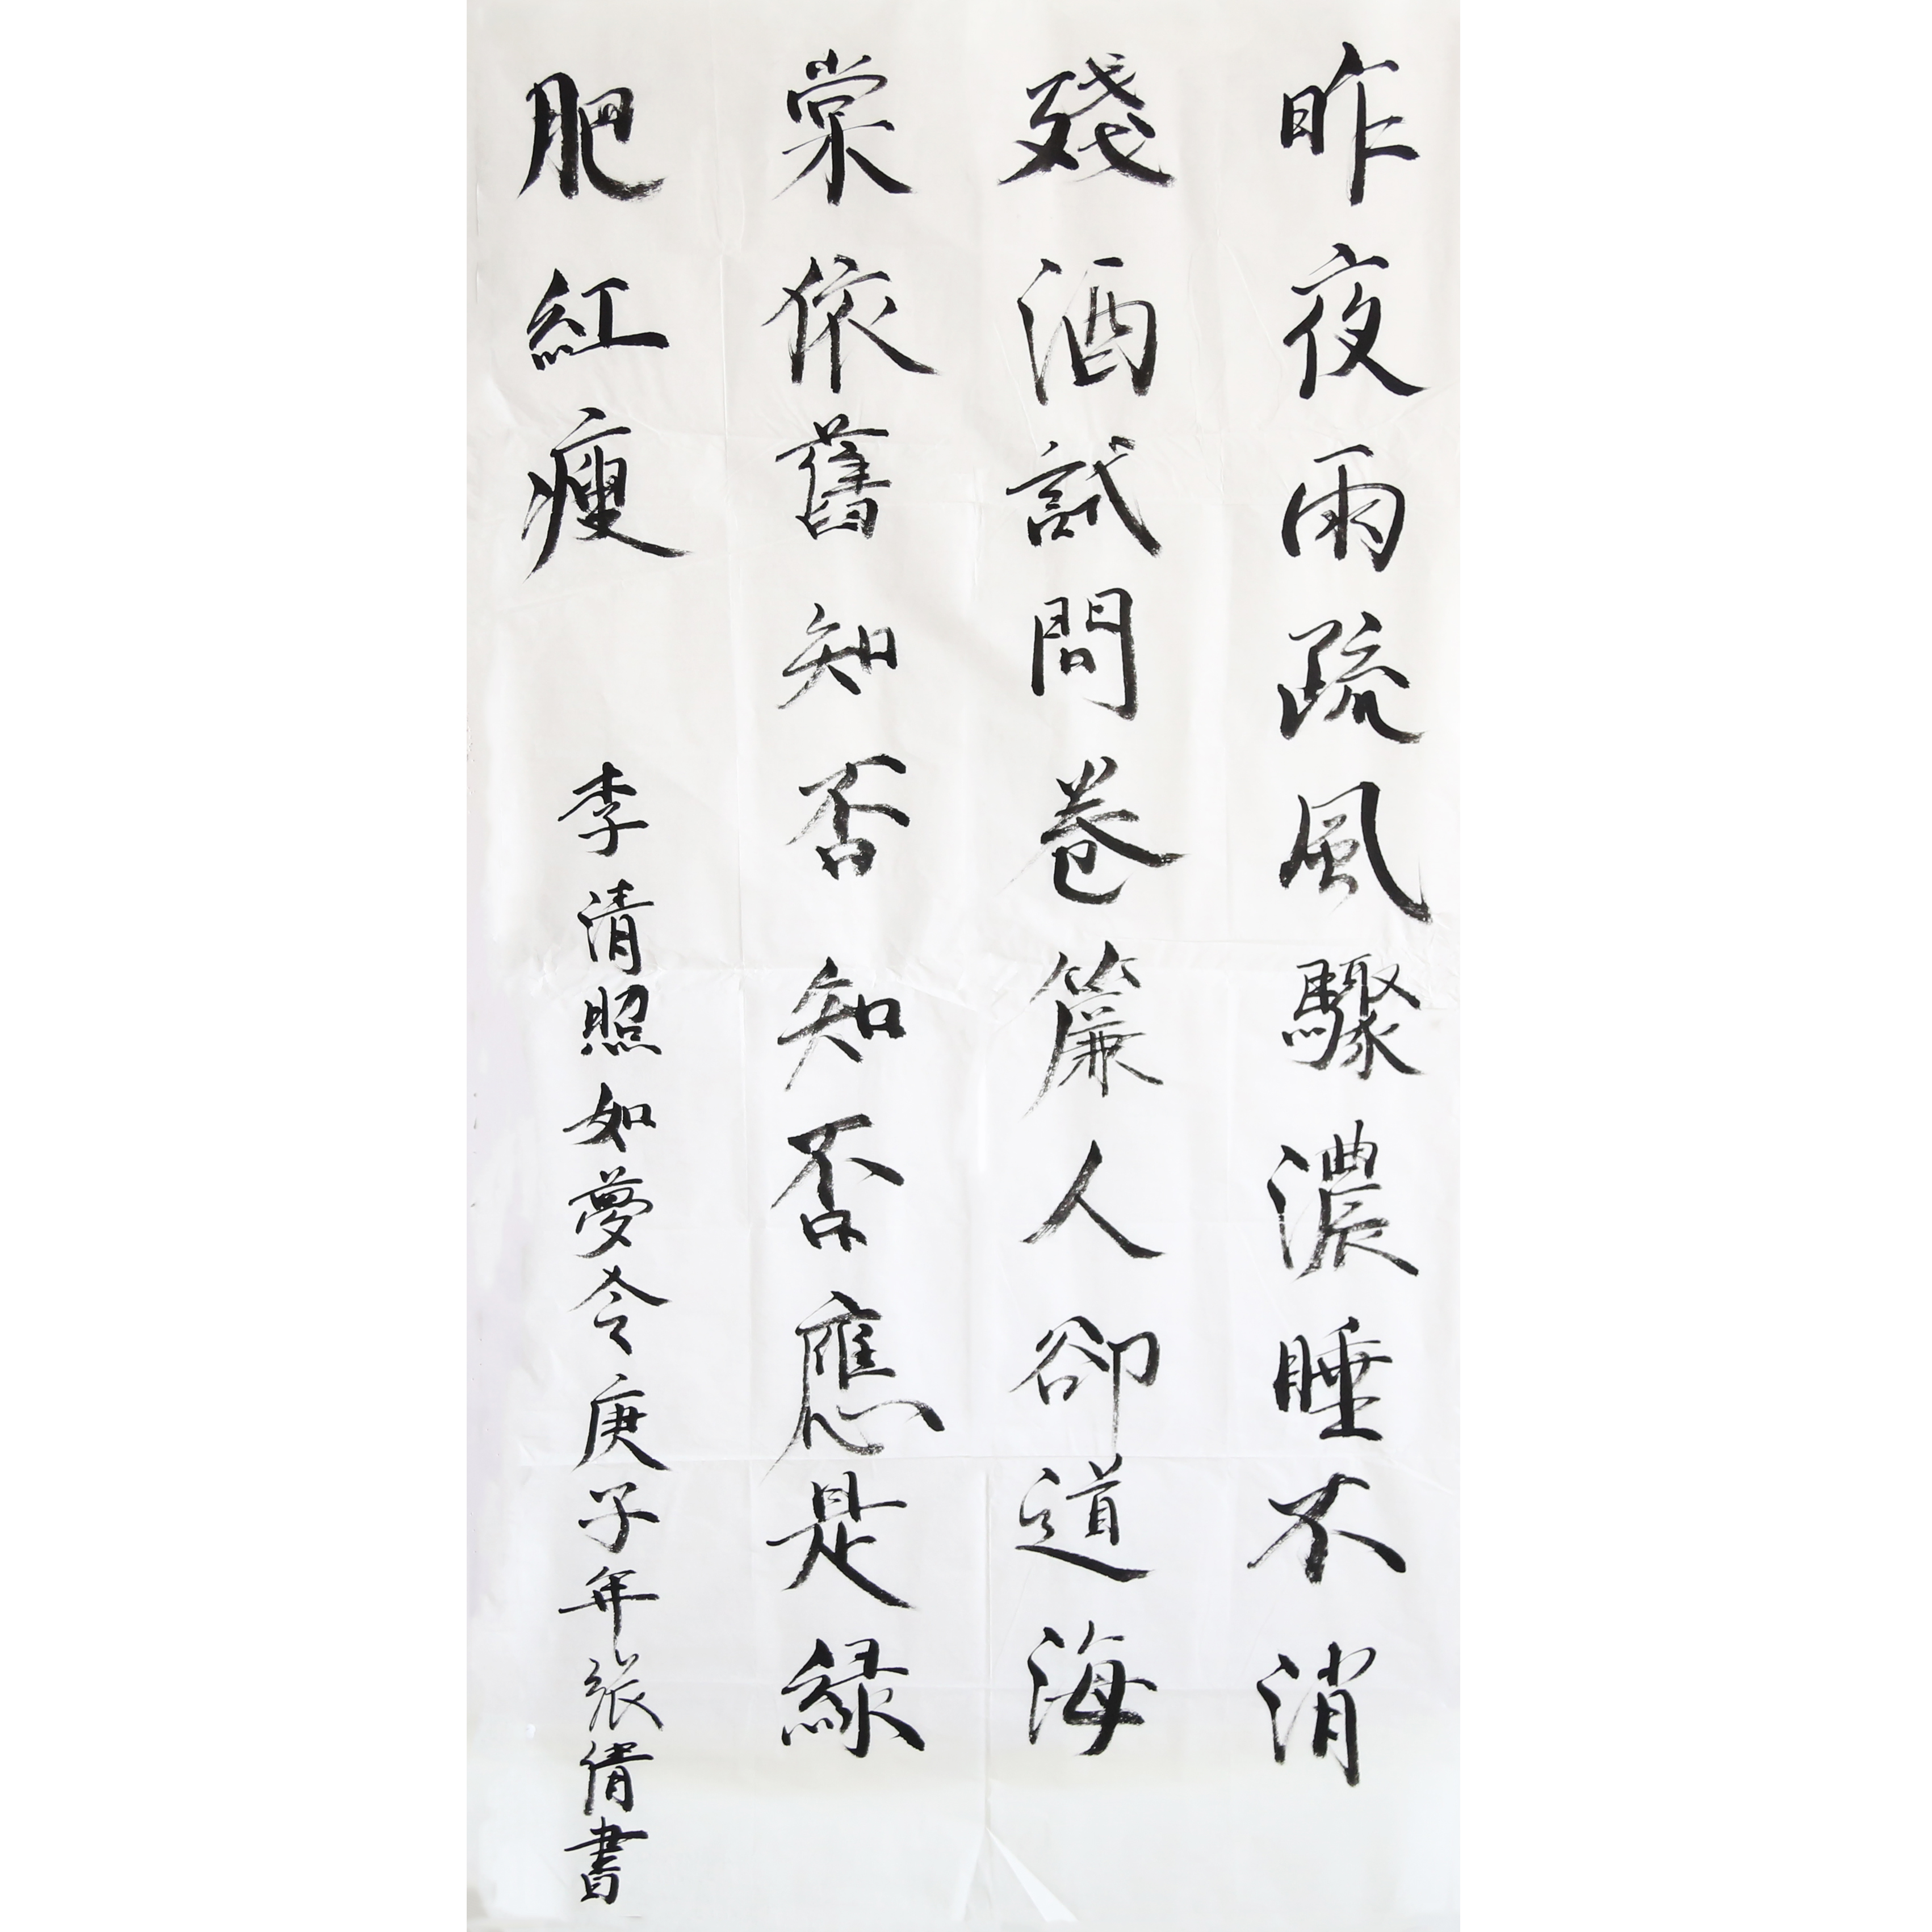 昨夜雨疏風驟濃睡不消
殘酒試問卷簾人卻道海
棠依舊知否知否應是綠
肥紅瘦
李清照如夢令庚子年張倩書